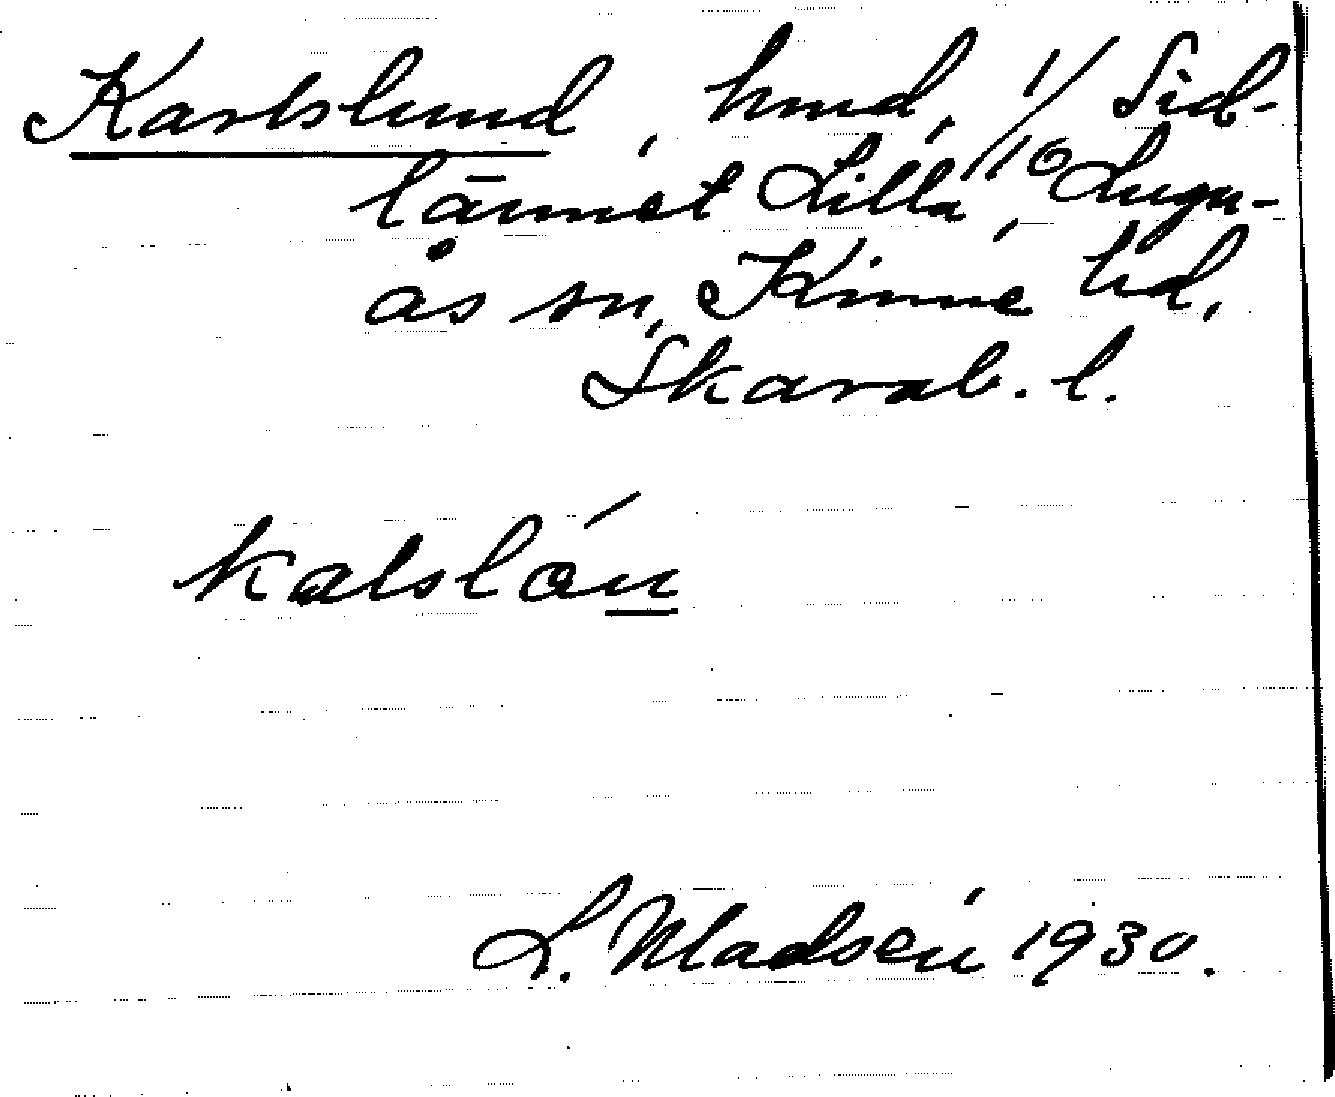 Karlslund, hmd, 1/10 Sid-
lännet Lilla, Lugn-
ås sn, Kinne hd,
Skarab. l.
kalslón
L. Madsén 1930.